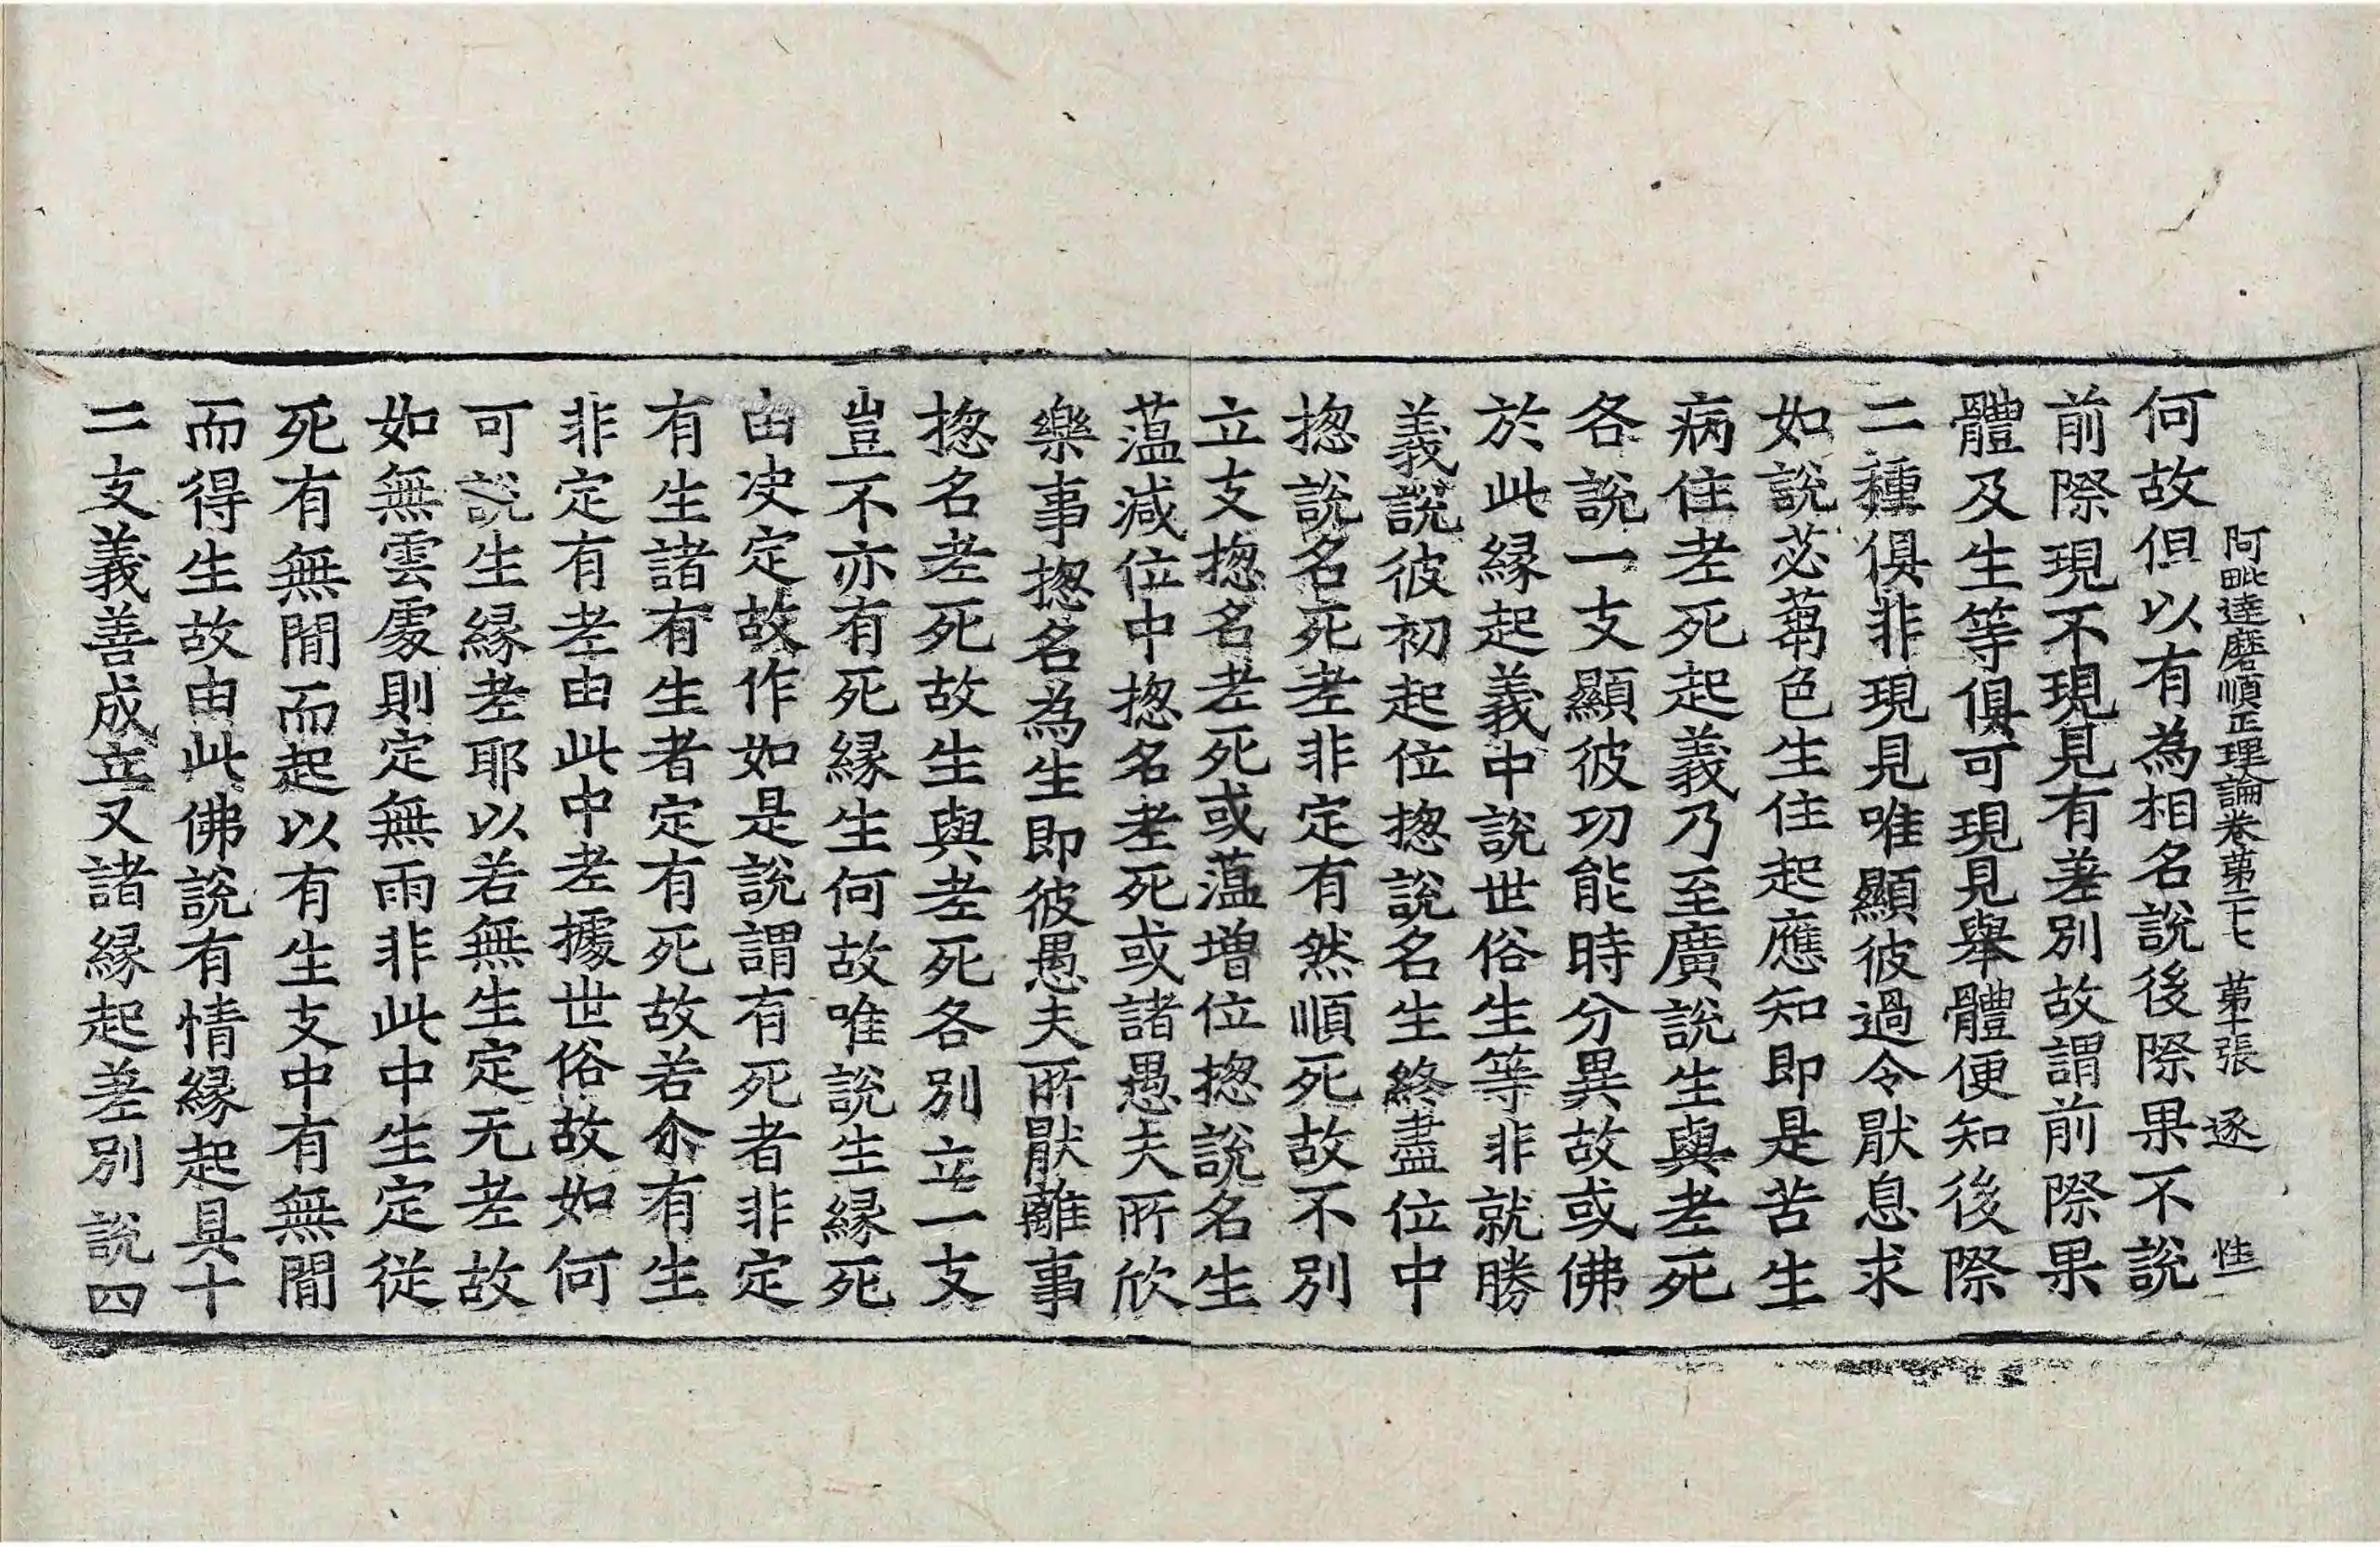 阿毗達磨順正理論卷苐二十七 苐十張 逐 恠
何故但以有為相名說後際果不說
前際現不現見有差別故謂前際果
體及生等俱可現見舉體便知後際
二種俱非現見唯顯彼過令猒息求
如說苾蒭色生住起應知即是苦生
病住老死起義乃至廣說生與老死
各說一支顯彼功能時分異故或佛
於此緣起義中說世俗生等非就勝
義說彼初起位揔說名生終盡位中
揔說名死老非定有然順死故不別
立支揔名老死或蕰增位揔說名生
蕰減位中揔名老死或諸愚夫所欣
樂事揔名為生即彼愚夫所猒離事
揔名老死故生與老死各別立一支
豈不亦有死緣生何故唯說生緣死
由决定故作如是說謂有死者非定
有生諸有生者定有死故若尒有生
非定有老由此中老據世俗故如何
可說生緣老耶以若無生定无老故
如無雲處則定無雨非此中生定從
死有無間而起以有生支中有無間
而得生故由此佛說有情緣起具十
二支義善成立又諸緣起差別說四